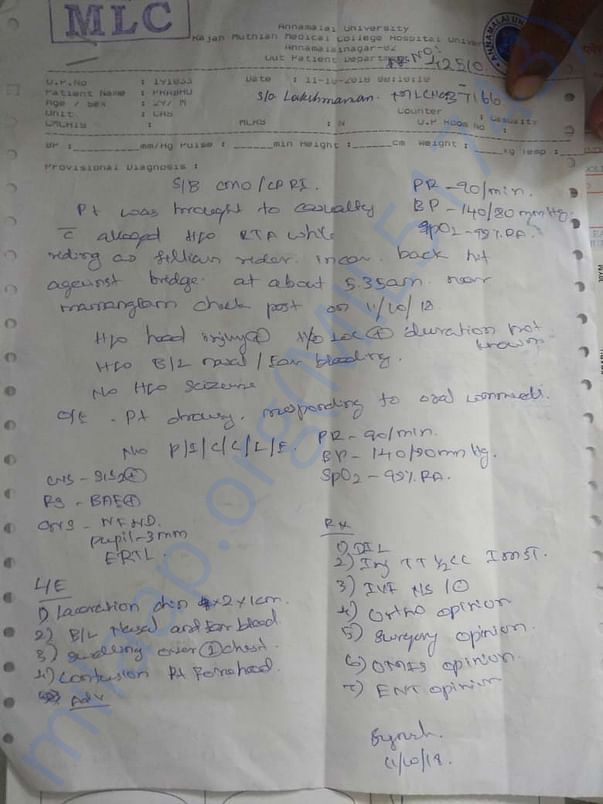 MLC
Annamalai University
Rajah Muthiah Medical College Hospital
Annamalainagar-02
Out Patient Department
No: 42510
O.P.No : 191033 Date : 11-10-2018
Patient Name : PRABHU S/o Lakshmanan.
Age / Sex : 29/ M Counter : Casualty
Unit : CAS O.P Room No :
MLHS : N
BP : mm/Hg Pulse : min Height : cm Weight : kg Temp :
Provisional Diagnosis :
S/B CMO / CPRI. PR - 90/min.
Pt was brought to casualty BP - 140/80 mmHg.
c̄ alleged H/o RTA while SpO2 - 99% RA.
riding as pillion rider back hit
against bridge. at about 5.35am. near
check post on 11/10/18.
H/o head injury ⊕ H/o LOC ⊕ duration not known
H/o B/L nasal / Ear bleeding.
No H/o seizure
O/E - Pt drowsy, responding to oral commands.
No P/I/C/C/L/E. PR - 90/min.
BP - 140/90 mmHg.
CVS - S1S2⊕ SpO2 - 99% RA.
RS - BAE⊕
CNS - NFND.
pupil - 3mm
ERTL.
Rx
1) DIL
2) Inj TT ½ CC IM ST.
3) IVF NS 1 ⓪
4) Ortho opinion
5) Surgery opinion.
6) OMFS opinion.
7) ENT opinion
L/E
1) Laceration chin 2 x 1cm.
2) B/L Nasal and Ear blood.
3) Swelling over chest.
4) Contusion Rt Forehead.
Adv
11/10/18.
milaap.org